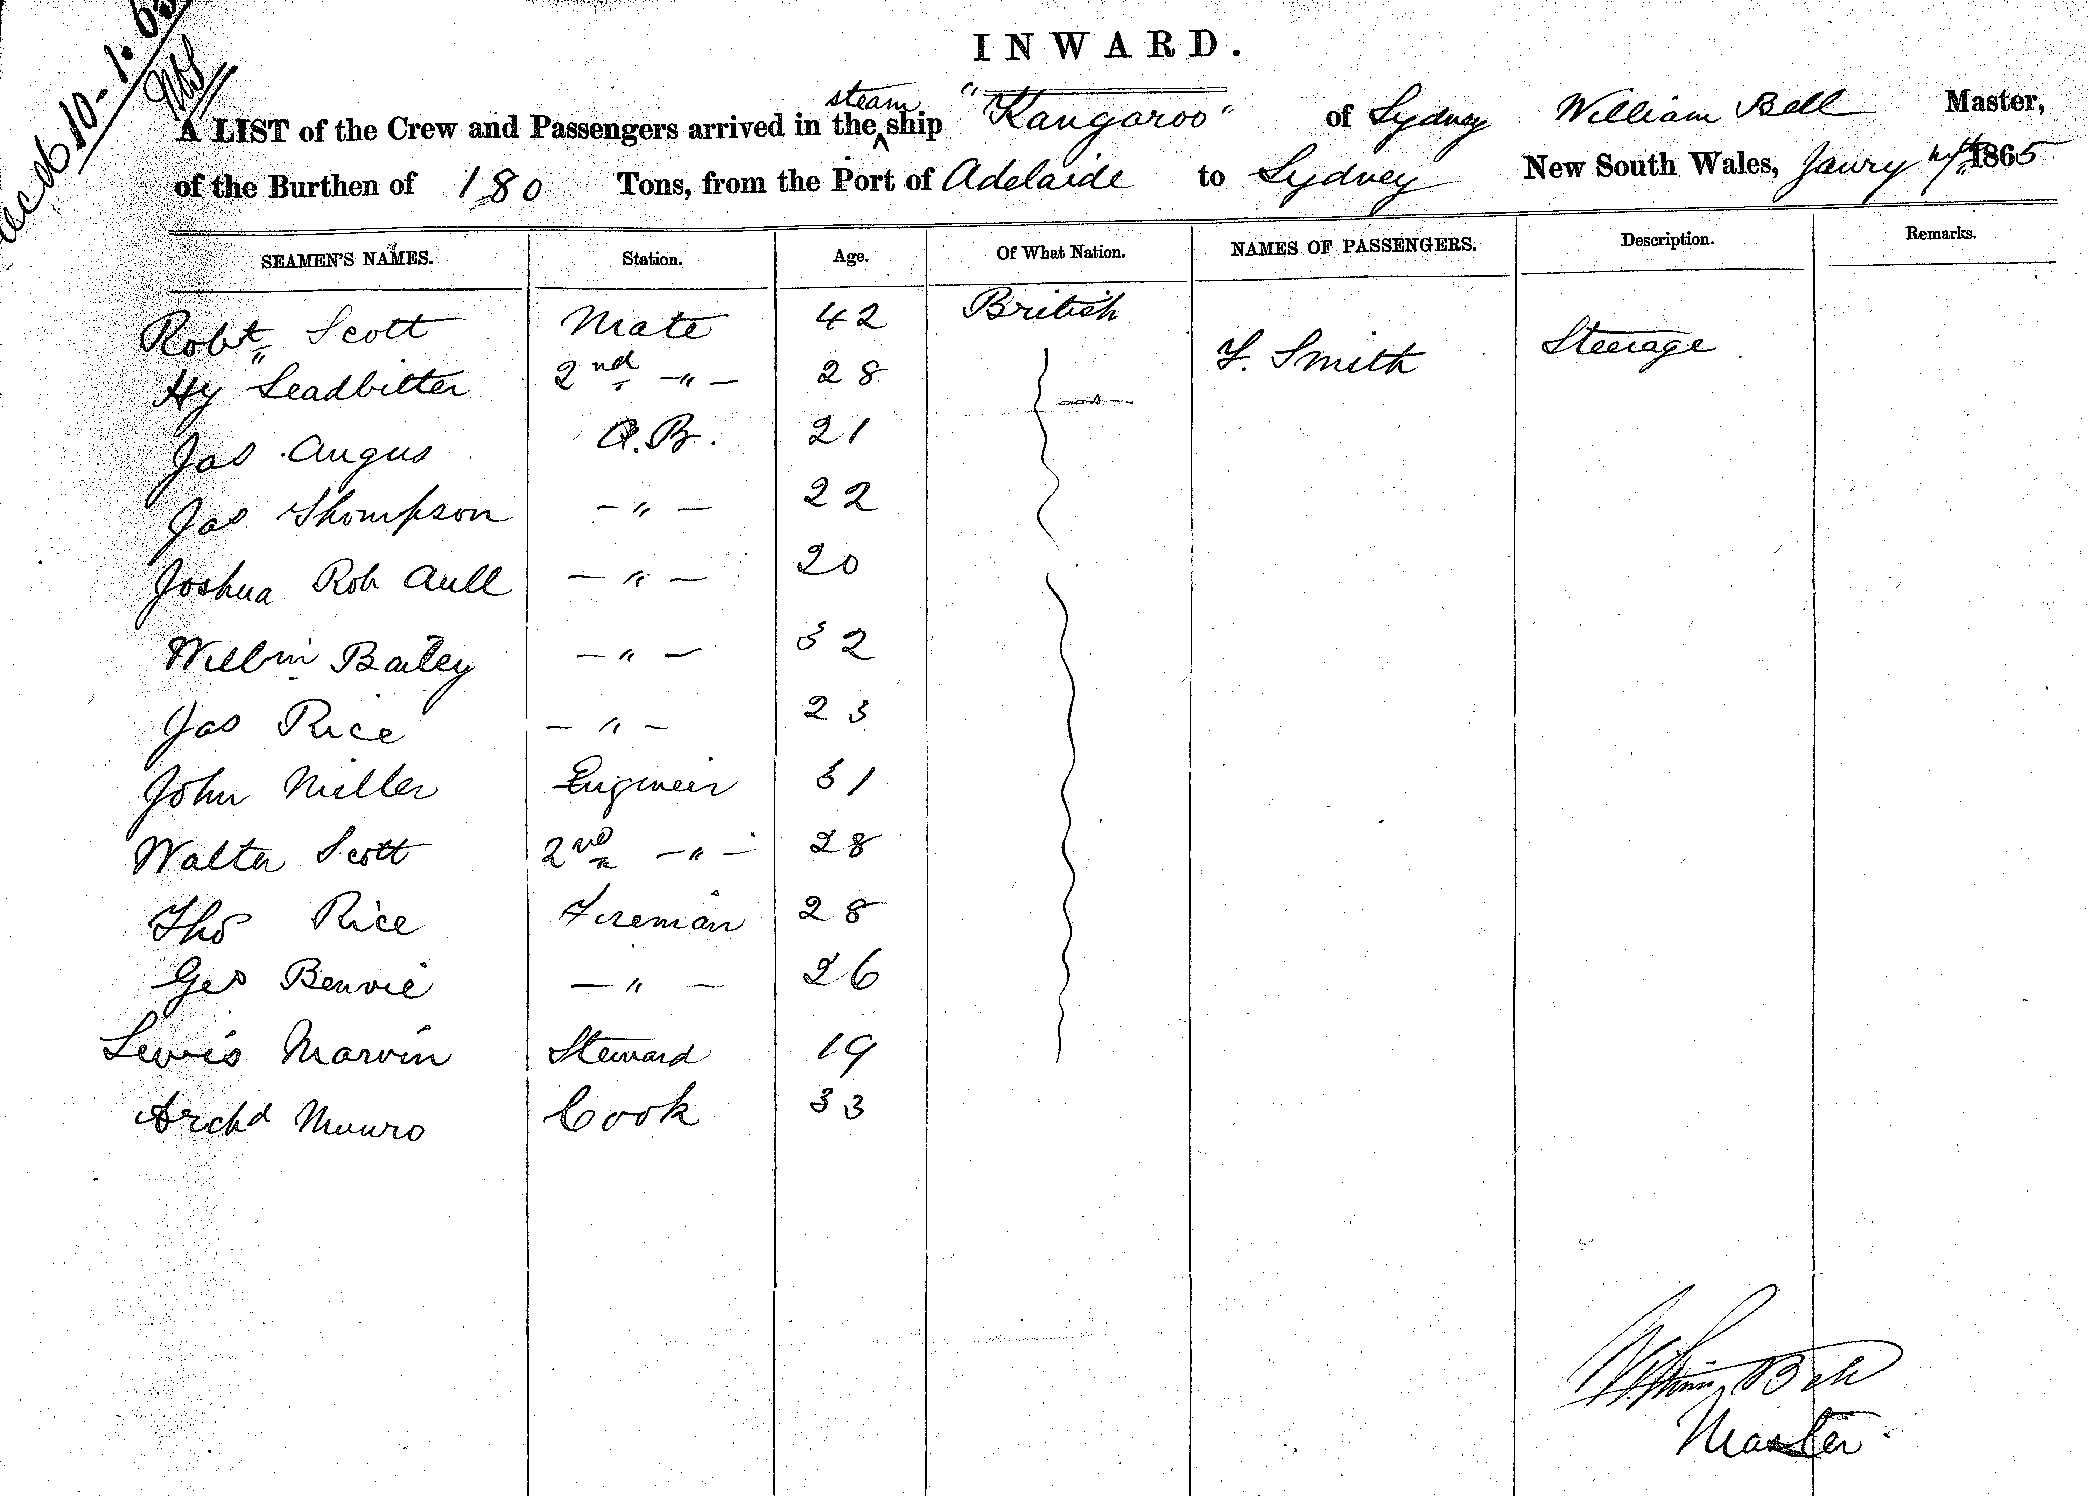 10-1.65
INWARD.
A LIST of the Crew and Passengers arrived in the steam ship "Kangaroo" of Sydney William Bell Master,
of the Burthen of 180 Tons, from the Port of Adelaide to Sydney New South Wales, Janry 1865
SEAMEN'S NAMES. Station. Age. Of What Nation. NAMES OF PASSENGERS. Description. Remarks.
Robt Scott Mate 42 British
Hy Leadbitter 2nd -"- 28 -"- F. Smith Steerage
Jas Angus A.B. 21
Jas Thompson -"- 22
Joshua Rob Aull -"- 20
Willm Bailey -"- 32
Jas Rice -"- 23
John Miller Engineer 31
Walter Scott 2nd -"- 28
Thos Rice Fireman 28
Geo Benvie -"- 26
Lewis Marvin Steward 19
Archd Munro Cook 33
William Bell
Master